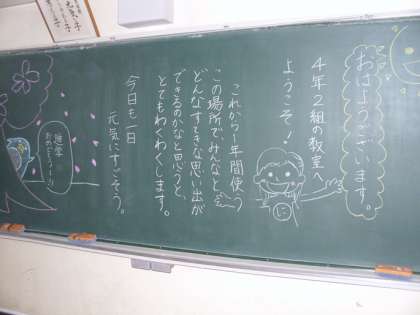 おはようございます。
4年2組の教室へ
ようこそ!
これから一年間使う
この場所でみんなと
どんなすてきな思い出が
できるのかなと思うと、
とてもわくわくします。
今日も一日
元気にすごそう。
進学
おめでとうー!!